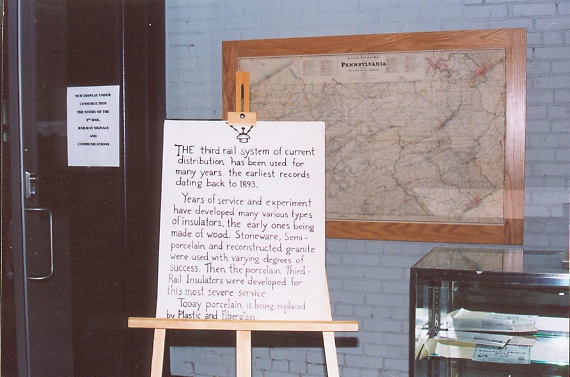 NEW DISPLAY UNDER
CONSTRUCTION
THE STORY OF THE
3RD RAIL
RAILWAY SIGNALS
AND
COMMUNICATIONS
PENNSYLVANIA
THE third rail system of current
distribution has been used for
many years. the earliest records
dating back to 1893.
Years of service and experiment
have developed many various types
of insulators, the early ones being
made of wood. Stoneware, Semi-
porcelain and reconstructed granite
were used with varying degrees of
success. Then the porcelain Third-
Rail Insulators were developed for
this most severe service.
Today porcelain is being replaced
by Plastic and Fiberglass.